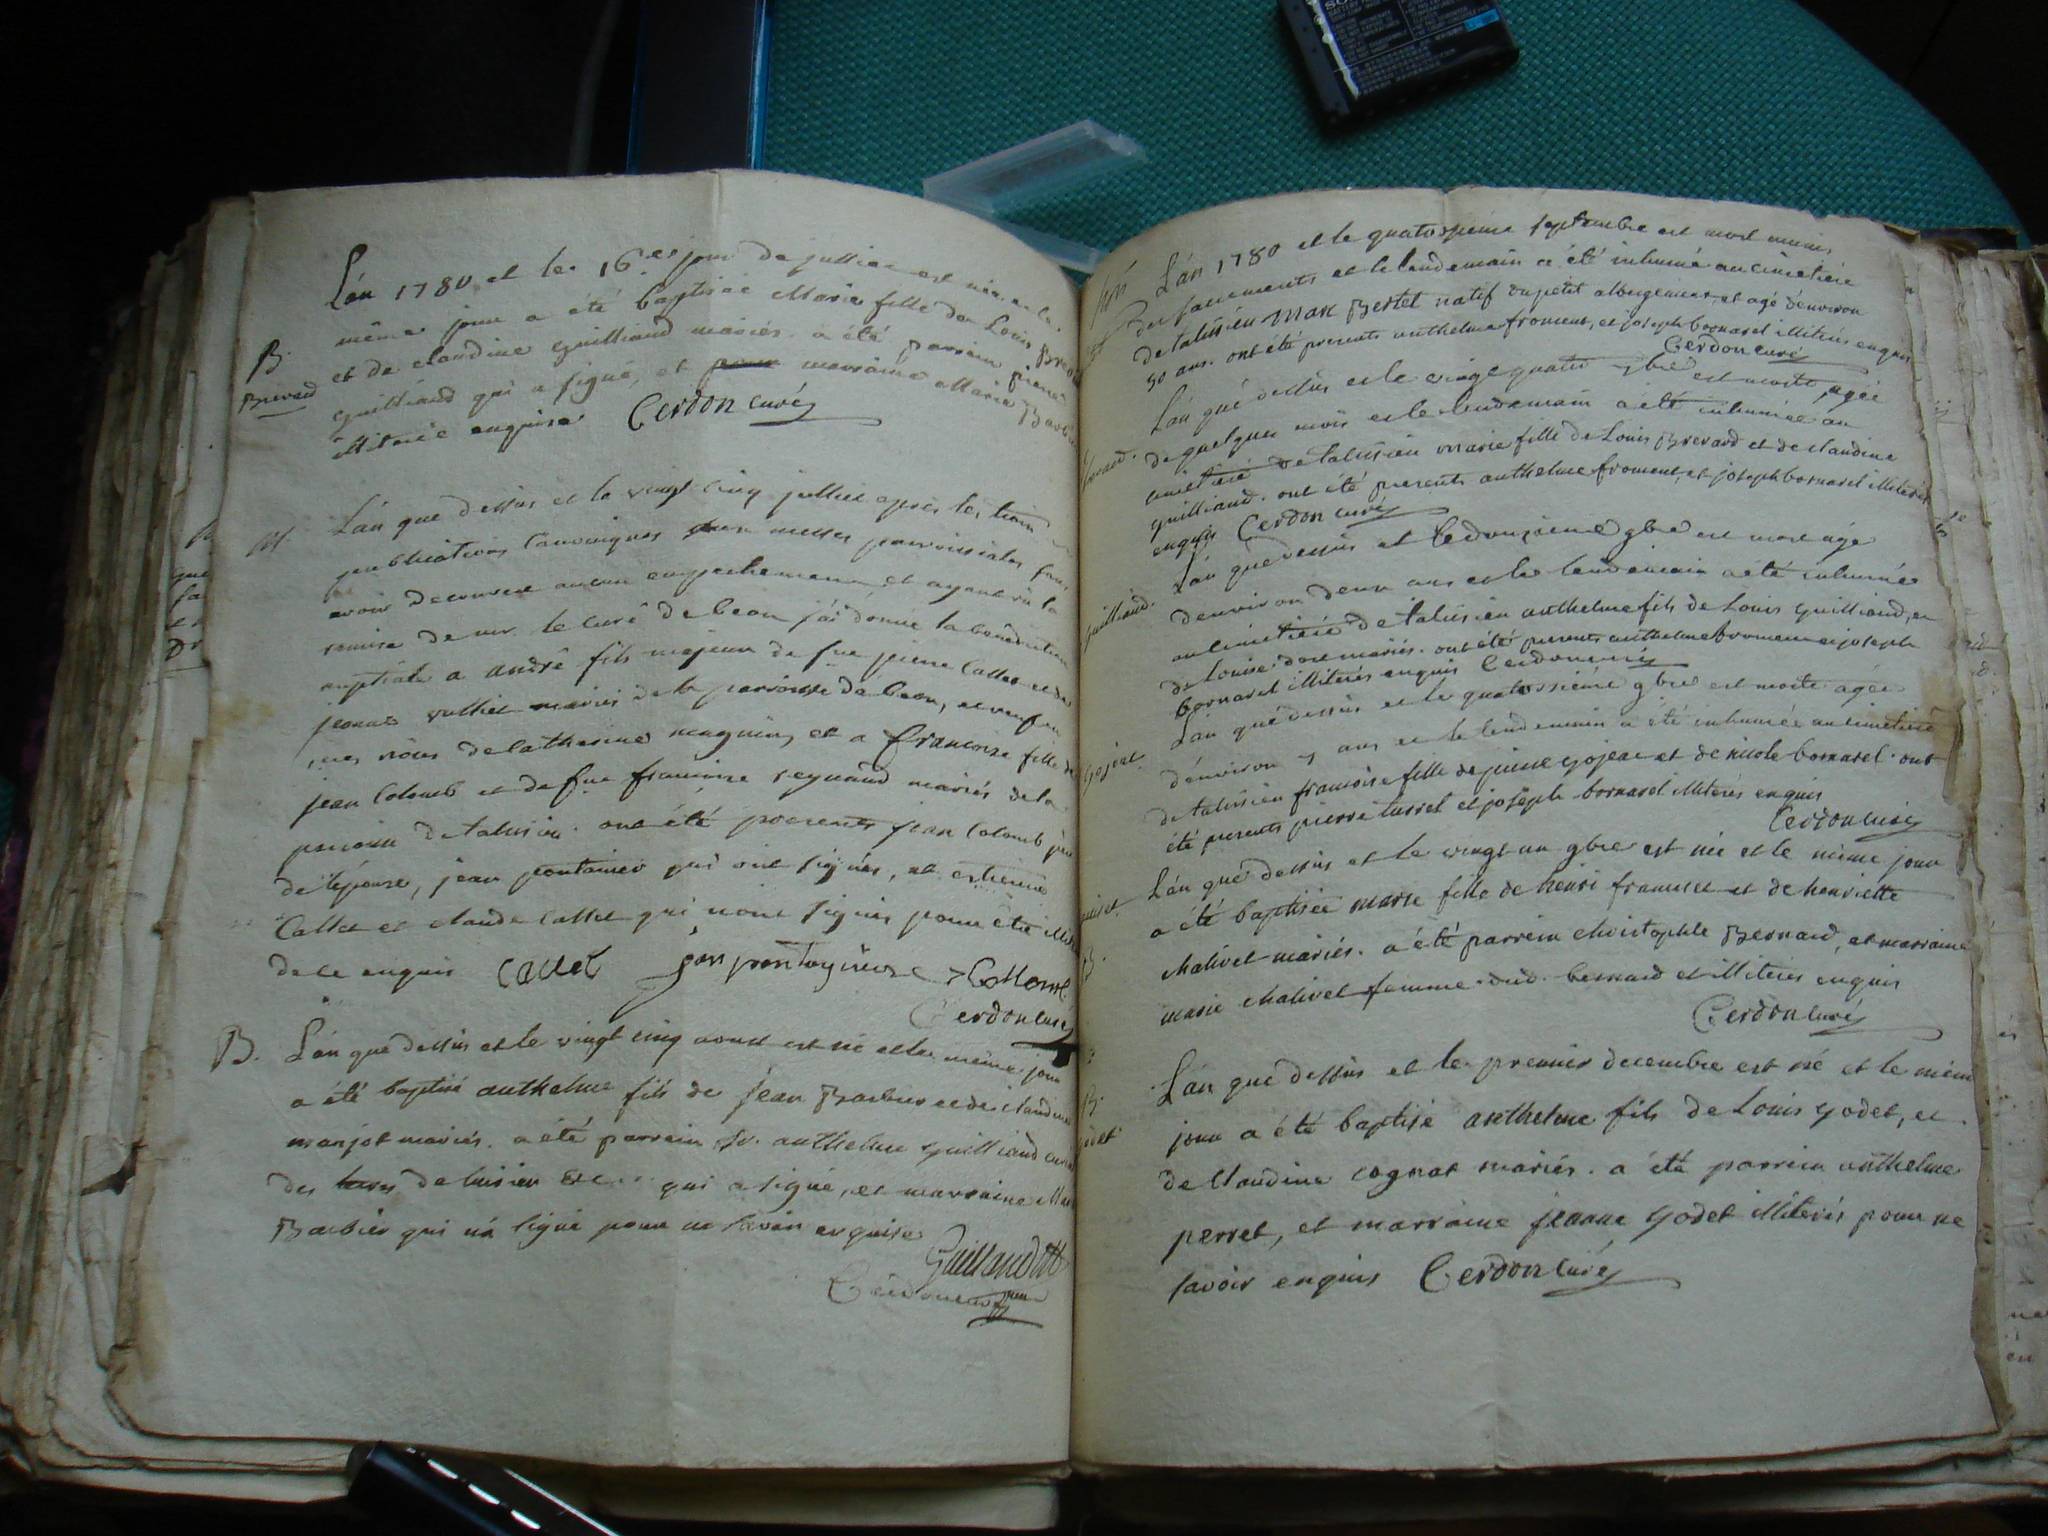 Lán 1780 et le 16e jour de juillet est née et le
même jour a été baptisée Marie fille de Louis Brevard
et de claudine guilliand mariés. a été parrein pierre
guilliand qui a signé, et marraine Marie Barbier
illiterée enquise Cerdon curé
B.
Brevard
M
Lán que dessus et le vingt cinq juillet après les trois
publications canoniques aux messes paroissiales sans
avoir decouvert aucun empechement et ayant vû la
remise de mr. le curé de beon j'ai donné la bénédiction
nuptiale a andré fils majeur de feu pierre Callet et de
jeanne vuthiet mariés de la parroisse de beon, et veuf en
nôces de Catherine magnin, et a francoise fille de
jean Colomb et de fue francoise reynaud mariés de la
paroisse de talissieu. ont été presents jean Colomb père
de l'épouse, jean pontanier qui ont signés, et estienne
Callet et claude Callet qui n'ont signés pour être illité
de ce enquis Callet jan pontagnier Collomb
Cerdon curé
B. Lán que dessus et le vingt cinq aoust est né et le même jour
a été baptisé anthelme fils de jean Barbier et de claudine
manjot mariés. a été parrein Sr. anthelme guilliand curé
des de luisieu qui a signé, et marraine Marie
Barbier qui n'a signé pour ne savoir enquise
Guilliand
Cerdon curé
Lán 1780 et le quatorzieme septembre est mort munis
des sacrements et le lendemain a été inhumé au cimetiere
de talissieu Marc Bertet natif du petit abergement, et agé d'environ
50 ans. ont été presents anthelme froment, et joseph bornarel illiterés enquis
Cerdon curé
Lán qué dessus et le vingt quatre 7bre est morte, agée
de quelques mois et le lendemain a été inhumée au
cimetiere de talissieu marie fille de Louis Brevard et de claudine
guilliand. ont été presents anthelme froment, et joseph bornarel illiterés
enquis Cerdon curé
Lán que dessus et le douzieme 9bre est mort agé
d'environ deux ans et le lendemain a été inhumé
guilliand.
au cimetiere de talissieu anthelme fils de Louis guilliand, et
de Louise dore mariés. ont été presents anthelme froment et joseph
bornarel illiterés enquis Cerdon curé
Lán qué dessus et le quatorsieme 9bre est morte agée
d'environ ans et le lendemain a été inhumée au cimetiere
gojeat.
de talissieu francoise fille de pierre gojeat et de nicole bornarel. ont
été presents pierre turrel et joseph bornarel illiterés enquis
Cerdon curé
Lán que dessus et le vingt un 9bre est née et le même jour
a été baptisée marie fille de henri francillet et de henriette
B.
chalivet mariés. a été parrein christophle Bernard, et marraine
marie chalivet femme dud. bernard et illiterés enquis
Cerdon curé
Lán que dessus et le premier decembre est né et le même
B.
jour a été baptisé anthelme fils de Louis godet, et
godet
de claudine cognat mariés. a été parrein anthelme
perret, et marraine jeanne godet illiterés pour ne
savoir enquis Cerdon curé